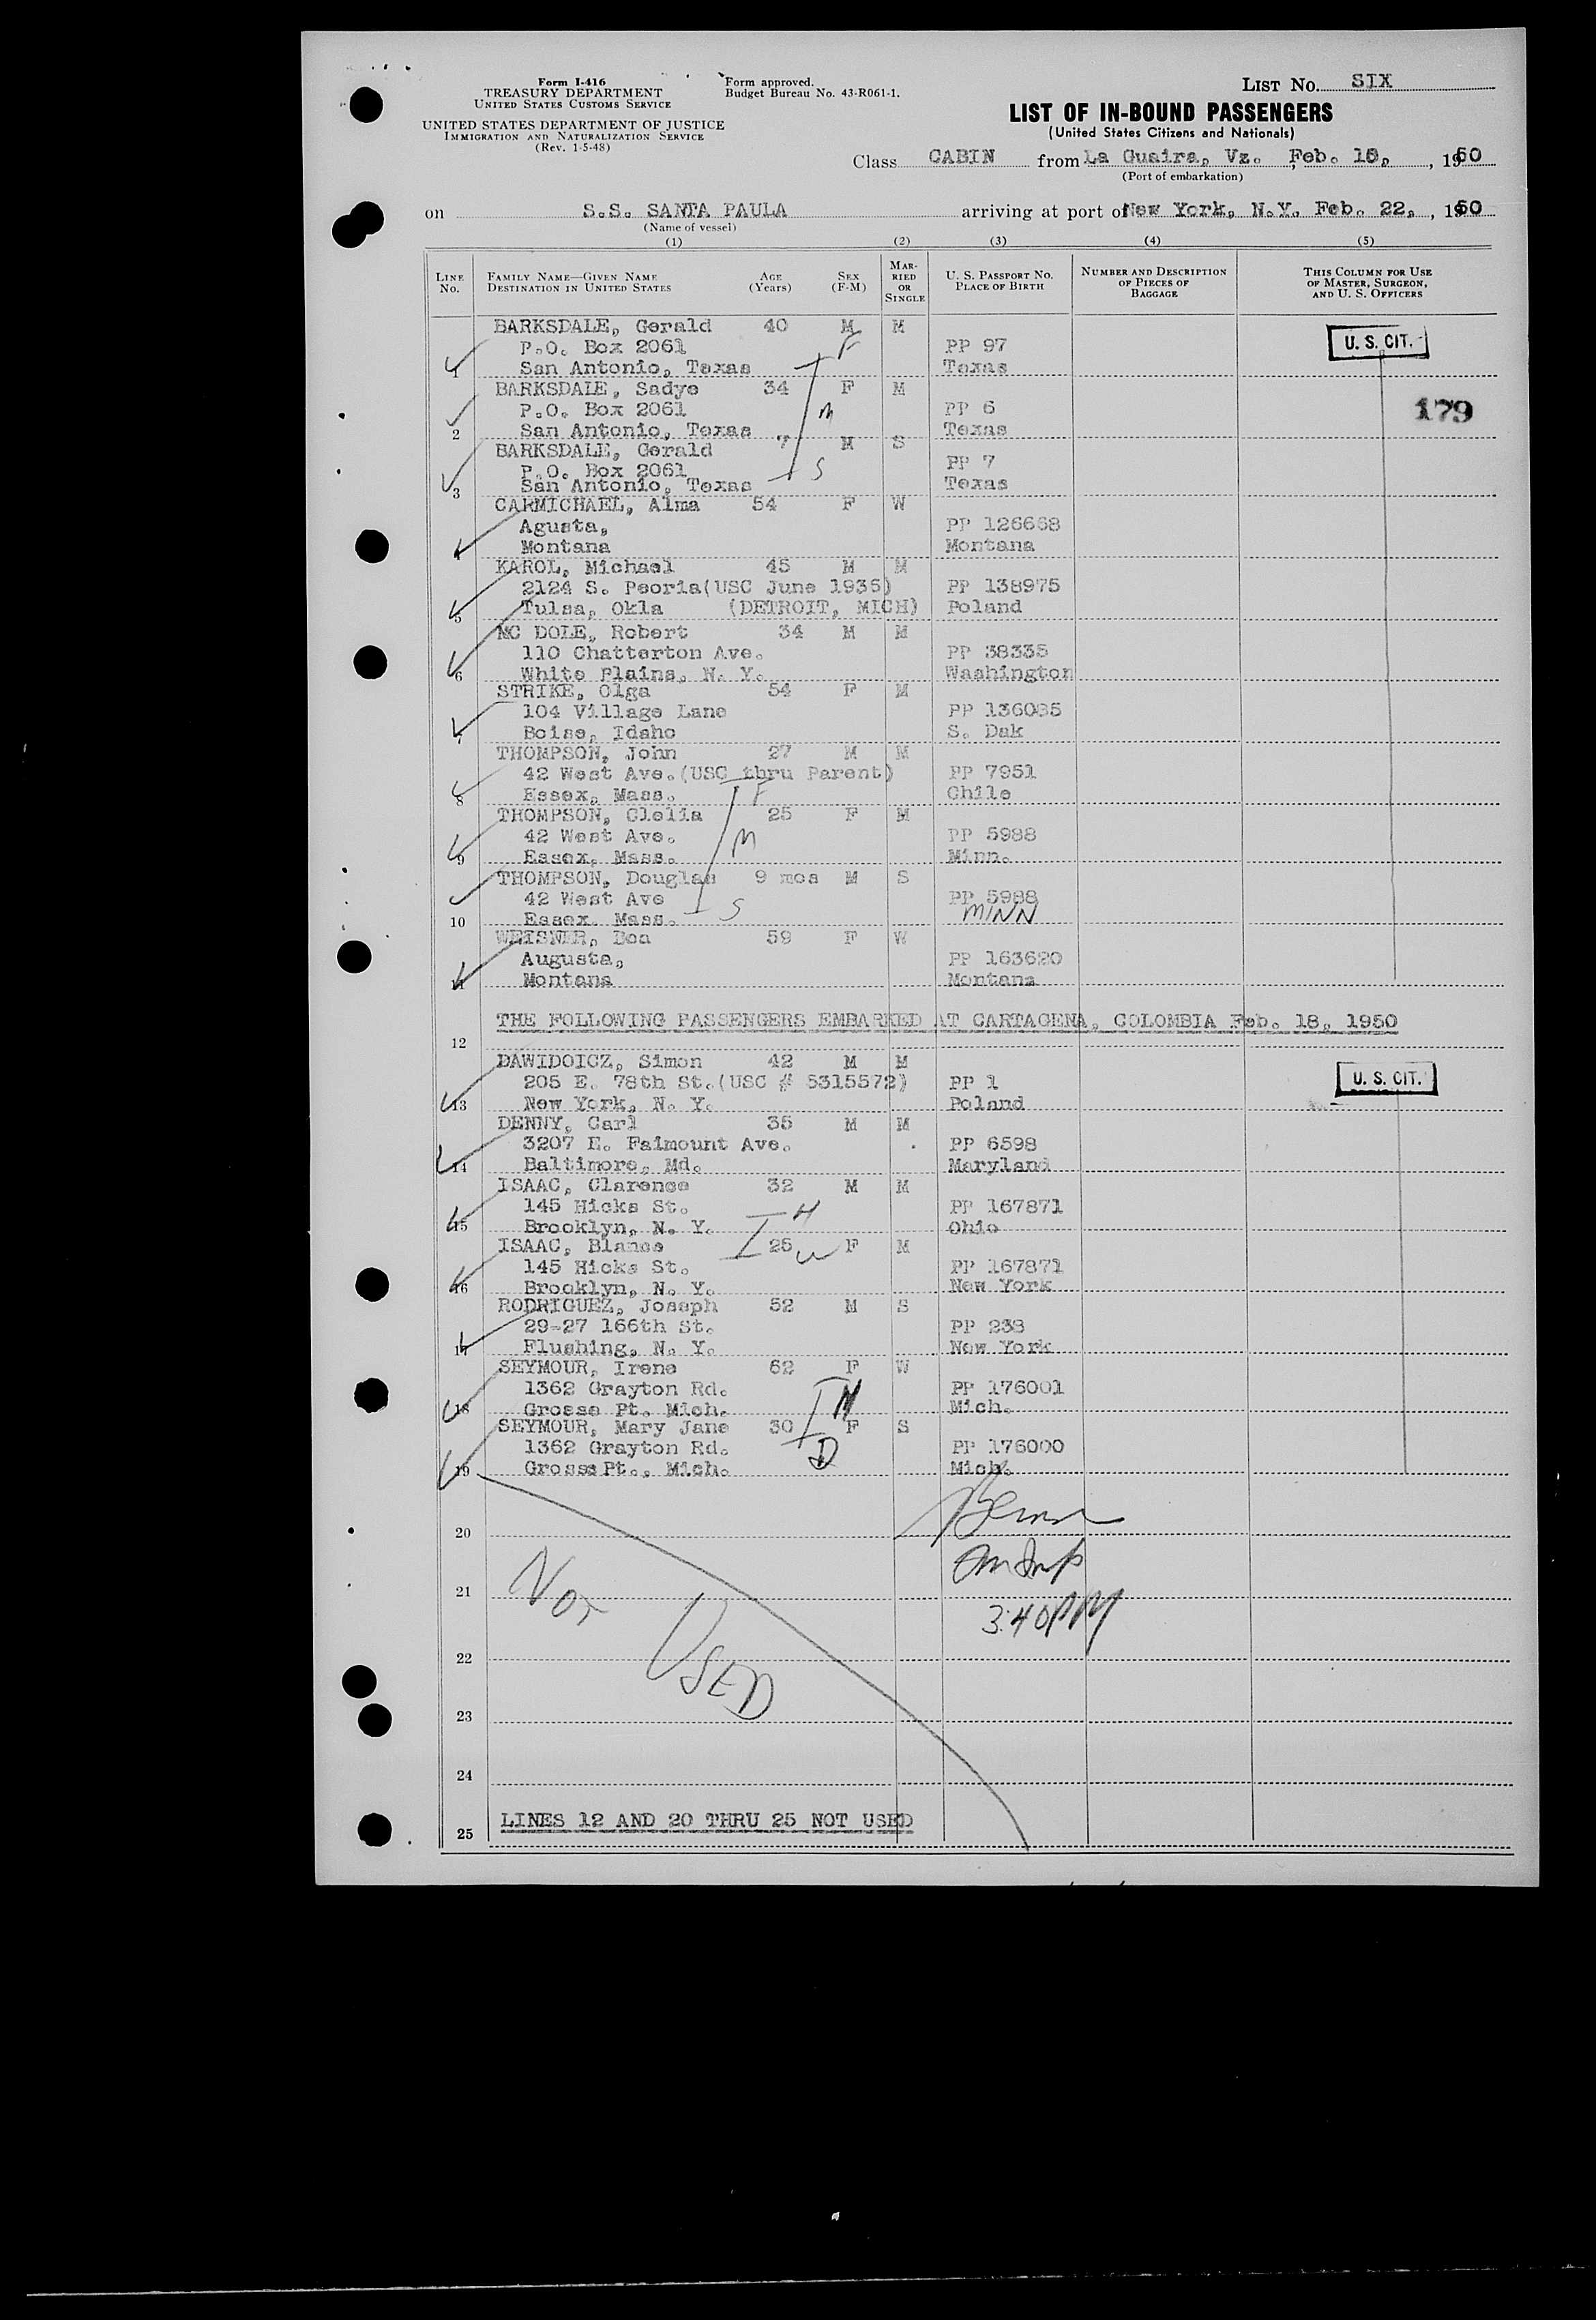 Form I-416
TREASURY DEPARTMENT
UNITED STATES CUSTOMS SERVICE
UNITED STATES DEPARTMENT OF JUSTICE
IMMIGRATION AND NATURALIZATION SERVICE
(Rev. 1-5-48)
Form approved.
Budget Bureau No. 43-R061-1.
LIST No. SIX
LIST OF IN-BOUND PASSENGERS
(United States Citizens and Nationals)
Class CABIN from La Guaira, Vz. , Feb. 15, , 1950
(Port of embarkation)
on S.S. SANTA PAULA arriving at port of New York, N.Y. Feb. 22, , 1950
(Name of vessel)
(1) (2) (3) (4) (5)
LINE No. FAMILY NAME—GIVEN NAME DESTINATION IN UNITED STATES AGE (Years) SEX (F-M) MARRIED OR SINGLE U. S. PASSPORT NO. PLACE OF BIRTH NUMBER AND DESCRIPTION OF PIECES OF BAGGAGE THIS COLUMN FOR USE OF MASTER, SURGEON, AND U. S. OFFICERS
BARKSDALE, Gerald 40 M M
P.O. Box 2061 F PP 97 U. S. CIT.
1 San Antonio, Texas Texas
BARKSDALE, Sadye 34 F M
P.O. Box 2061 M PP 6 179
2 San Antonio, Texas Texas
BARKSDALE, Gerald 7 M S
P.O. Box 2061 S PP 7
3 San Antonio, Texas Texas
CARMICHAEL, Alma 54 F W
Agusta, PP 126668
4 Montana Montana
KAROL, Michael 45 M M
2124 S. Peoria(USC June 1935) PP 138975
5 Tulsa, Okla (DETROIT, MICH) Poland
MC DOLE, Robert 34 M M
110 Chatterton Ave. PP 38335
6 White Plains, N. Y. Washington
STRIKE, Olga 54 F M
104 Village Lane PP 136035
7 Boise, Idaho S. Dak
THOMPSON, John 27 M M
42 West Ave.(USC thru Parent) PP 7951
8 Essex, Mass. F Chile
THOMPSON, Clelia 25 F M
42 West Ave. M PP 5988
9 Essex, Mass. Minn.
THOMPSON, Douglas 9 mos M S
42 West Ave PP 5988
10 Essex, Mass. S MINN
WEISNER, Bea 59 F W
Augusta, PP 163620
11 Montana Montana
THE FOLLOWING PASSENGERS EMBARKED AT CARTAGENA, COLOMBIA Feb. 18, 1950
12
DAWIDOICZ, Simon 42 M M
205 E. 78th St.(USC # 5315572) PP 1 U. S. CIT.
13 New York, N. Y. Poland
DENNY, Carl 35 M M
3207 E. Faimount Ave. PP 6598
14 Baltimore, Md. Maryland
ISAAC, Clarence 32 M M
145 Hicks St. H PP 167871
15 Brooklyn, N. Y. Ohio
ISAAC, Blance 25 W F M
145 Hicks St. PP 167871
16 Brooklyn, N. Y. New York
RODRIGUEZ, Joseph 52 M S
29-27 166th St. PP 238
17 Flushing, N. Y. New York
SEYMOUR, Irene 62 F W
1362 Grayton Rd. M PP 176001
18 Grosse Pt. Mich. Mich.
SEYMOUR, Mary Jane 30 F S
1362 Grayton Rd. D PP 176000
19 Grosse Pt., Mich. Mich.
20
21
NOT USED
3:40 PM
22
23
24
25 LINES 12 AND 20 THRU 25 NOT USED